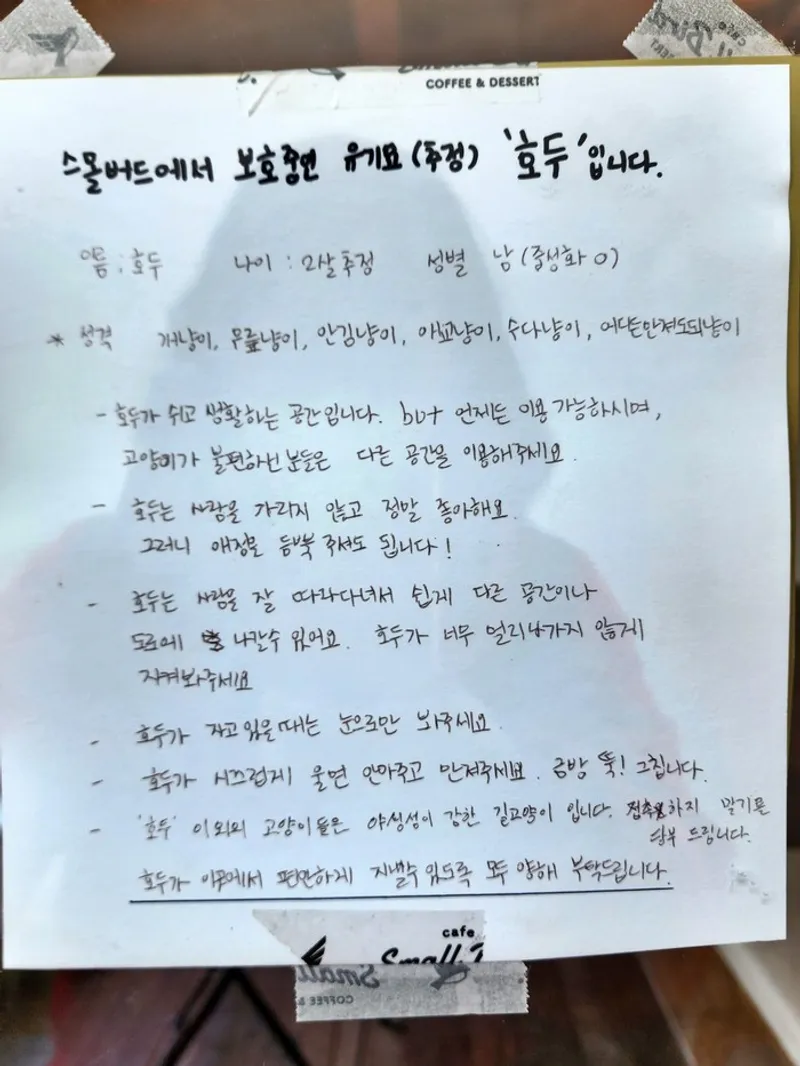 COFFEE & DESSERT
스몰버드에서 보호중인 유기묘(추정) '호두'입니다.
이름 : 호두 나이 : 2살추정 성별 남(중성화 O)
* 성격 개냥이, 무릎냥이, 안김냥이, 애교냥이, 수다냥이, 어디든만져도돼냥이
- 호두가 쉬고 생활하는 공간입니다. but 언제든 이용 가능하시며,
고양이가 불편하신분들은 다른 공간을 이용해주세요.
- 호두는 사람을 가리지 않고 정말 좋아해요.
그러니 애정을 듬뿍 주셔도 됩니다!
- 호두는 사람을 잘 따라다녀서 쉽게 다른 공간이나
도로에 나갈수 있어요. 호두가 너무 멀리나가지 않게
지켜봐주세요
- 호두가 자고있을때는 눈으로만 봐주세요.
- 호두가 시끄럽게 울면 안아주고 만져주세요. 금방 뚝! 그칩니다.
- '호두' 이외의 고양이들은 야생성이 강한 길고양이 입니다. 접촉하지 말기를
당부 드립니다.
호두가 이곳에서 편안하게 지낼수 있도록 모두 양해 부탁드립니다.
cafe
Small